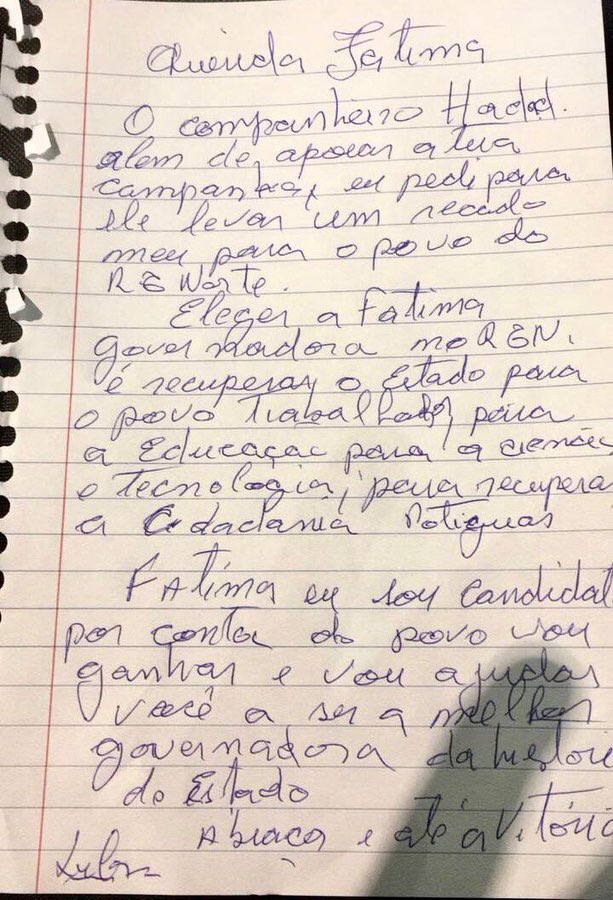 Querida Fatima
O companheiro Hadad.
alem de, apoiar a tua
campanha, eu pedi para
ele levar um recado
meu para o povo do
RG Norte.
Eleger a Fatima
governadora no RGN.
é recuperar o Estado para
o povo Trabalhador, para
a Educaçao para a ciencia
e Tecnologia, para recupera
a Cidadania Potiguar
FATima eu sou candidat
por conta do povo vou
ganhar e vou ajudar
você a ser a melhor
governadora da histori
do Estado
Abraço e até a Vitória
Lula